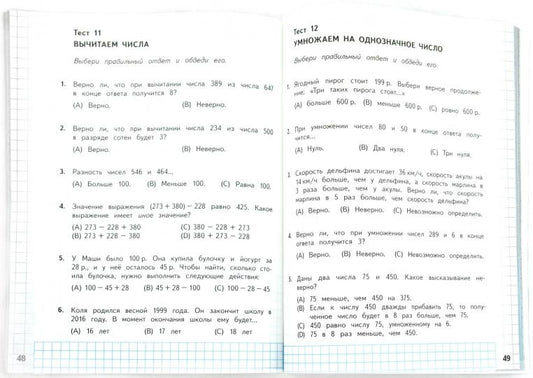 Тест 11
ВЫЧИТАЕМ ЧИСЛА
Выбери правильный ответ и обведи его.
1. Верно ли, что при вычитании числа 389 из числа 647
в конце ответа получится 8?
(А) Верно. (В) Неверно.
2. Верно ли, что при вычитании числа 234 из числа 500
в разряде сотен будет 3?
(А) Верно. (В) Неверно.
3. Разность чисел 546 и 464...
(А) Больше 100. (В) Меньше 100. (С) Равна 100.
4. Значение выражения (273 + 380) − 228 равно 425. Какое
выражение имеет иное значение?
(А) 273 − 228 + 380 (С) 380 − 228 + 273
(В) 273 + 228 − 380 (D) 380 + 273 − 228
5. У Маши было 100 р. Она купила булочку и йогурт за
28 р., и у неё осталось 45 р. Чтобы найти, сколько сто-
ила булочка, нужно выполнить следующие действия:
(А) 100 − 45 + 28 (В) 45 + 28 − 100 (С) 100 − 28 − 45
6. Коля родился весной 1999 года. Он закончит школу в
2016 году. В момент окончания школы ему будет...
(А) 16 лет (В) 17 лет (С) 18 лет
48
Тест 12
УМНОЖАЕМ НА ОДНОЗНАЧНОЕ ЧИСЛО
Выбери правильный ответ и обведи его.
1. Ягодный пирог стоит 199 р. Выбери верное продолже-
ние: «Три таких пирога стоят...»
(А) больше 600 р. (В) меньше 600 р. (С) ровно 600 р.
2. При умножении чисел 80 и 50 в конце ответа полу-
чится...
(А) Нуль. (В) Два нуля. (С) Три нуля.
3. Скорость дельфина достигает 36 км/ч, скорость акулы на
14 км/ч больше, чем у дельфина, а скорость марлина в
3 раза больше, чем у акулы. Верно ли, что скорость
марлина в 5 раз больше, чем скорость дельфина?
(А) Верно. (В) Неверно. (С) Невозможно определить.
4. Верно ли, что при умножении чисел 289 и 6 в конце
ответа получится 3?
(А) Верно. (В) Неверно. (С) Невозможно определить.
5. Даны два числа 75 и 450. Какое высказывание не-
верно?
(А) 75 меньше, чем 450 на 375.
(В) Если к числу 450 дважды прибавить 75, то полу-
ченное число будет в 8 раз больше, чем 75.
(С) 450 равно числу 75, умноженному на 6.
(D) 75 в 8 раз меньше, чем 450.
49